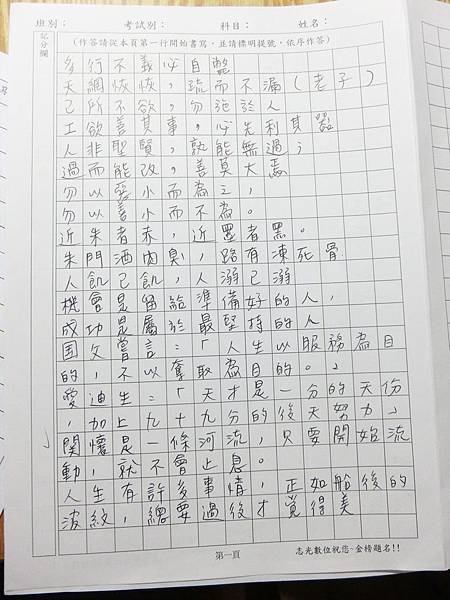 班別： 考試別： 科目： 姓名：
記分欄
（作答請從本頁第一行開始書寫，並請標明題號，依序作答）
多行不義必自斃
天網恢恢，疏而不漏（老子）
己所不欲，勿施於人
工欲善其事，必先利其器
人非聖賢，孰能無過；
過而能改，善莫大焉
勿以惡小而為之，
勿以善小而不為。
近朱者赤，近墨者黑。
朱門酒肉臭，路有凍死骨
人飢己飢，人溺己溺
機會是留給準備好的人，
成功是屬於最堅持的人
國父嘗言：「人生以服務為目
的，不以奪取為目的。」
愛迪生：「天才是一分的天份
，加上九十九分的後天努力」
關懷是一條河流，只要開始流
動，就不會止息。
人生有許多事情，正如船後的
波紋，總要過後才覺得美
第一頁
志光數位祝您~金榜題名!!